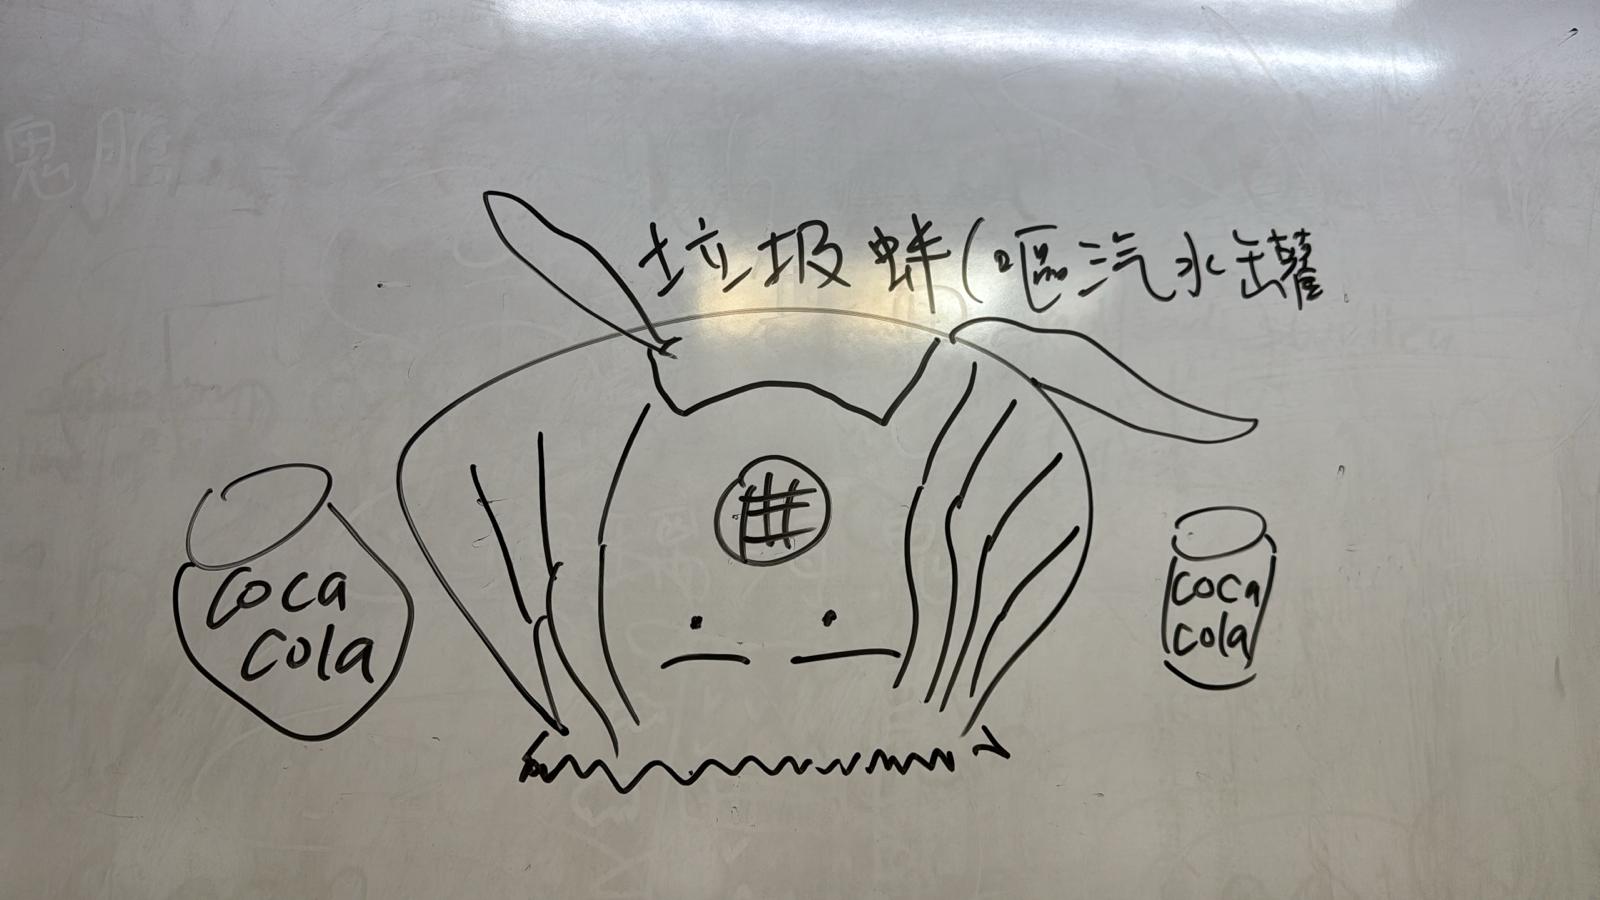 垃圾蚌(嘔汽水罐
coca
cola
coca
cola